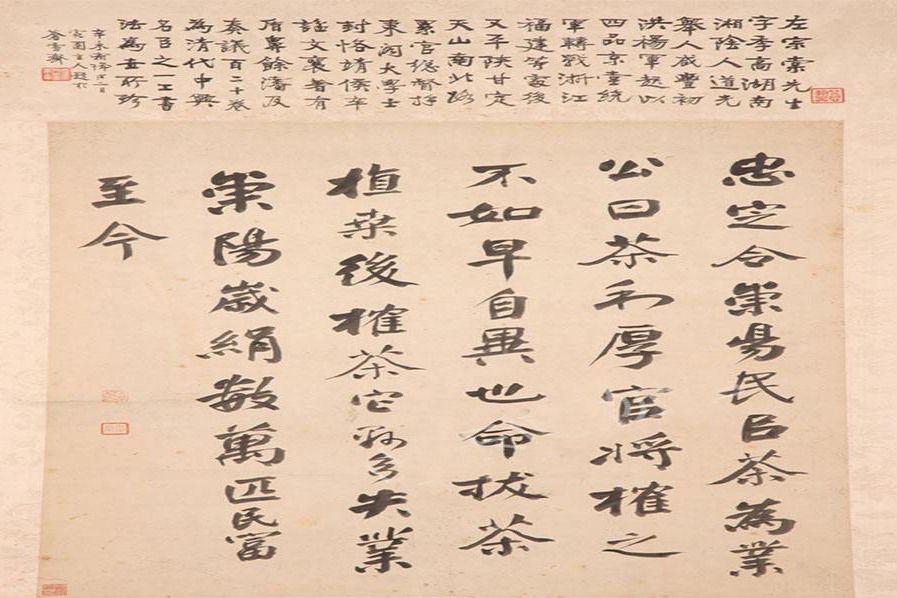 左宗棠先生
字季高湖南
湘陰人道光
舉人咸豐初
洪楊軍起以
四品京堂統
軍轉戰浙江
福建等處後
又平陝甘定
天山南北路
累官總督拜
東閣大學士
封恪靖侯卒
諡文襄著有
盾鼻餘瀋及
奏議百二十卷
為清代中興
名臣之一工書
法為世所珍
忠定令崇昜民㠯茶為業
公曰茶利厚官將榷之
不如早自異也命拔茶
植桑後榷茶它縣多失業
崇陽歲絹數萬匹民富
至今